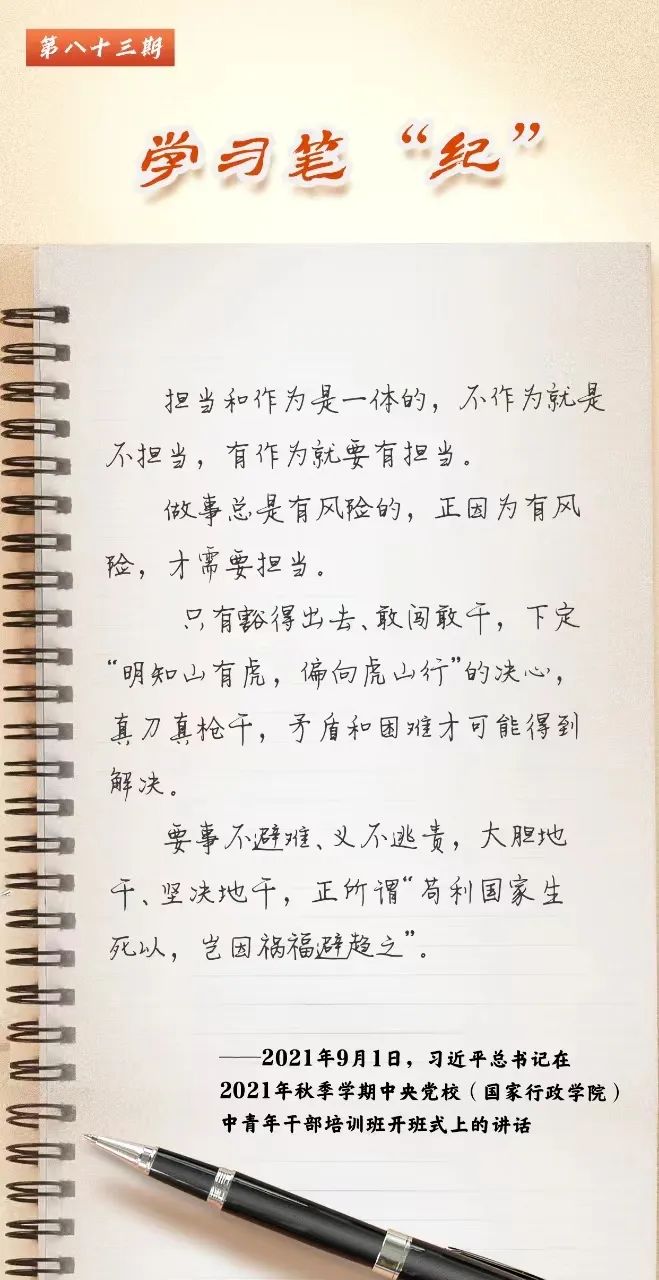 第八十三期
学习笔“纪”
担当和作为是一体的，不作为就是
不担当，有作为就要有担当。
做事总是有风险的，正因为有风
险，才需要担当。
只有豁得出去、敢闯敢干，下定
“明知山有虎，偏向虎山行”的决心，
真刀真枪干，矛盾和困难才可能得到
解决。
要事不避难、义不逃责，大胆地
干、坚决地干，正所谓“苟利国家生
死以，岂因祸福避趋之”。
——2021年9月1日，习近平总书记在
2021年秋季学期中央党校（国家行政学院）
中青年干部培训班开班式上的讲话